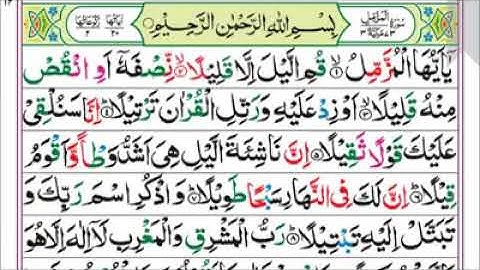 سورة المزمل ٧٣ مكية ٣ بسم الله الرحمن الرحيم اياتها ٢٠ ركوعاتها ٢
يٰۤاَيُّهَا الْمُزَّمِّلُ ۙ﴿۱﴾ قُمِ الَّيْلَ اِلَّا قَلِيْلًا ۙ﴿۲﴾ نِّصْفَهٗۤ اَوِ انْقُصْ
مِنْهُ قَلِيْلًا ۙ﴿۳﴾ اَوْ زِدْ عَلَيْهِ وَرَتِّلِ الْقُرْاٰنَ تَرْتِيْلًا ؕ﴿۴﴾ اِنَّا سَنُلْقِيْ
عَلَيْكَ قَوْلًا ثَقِيْلًا ﴿۵﴾ اِنَّ نَاشِئَةَ الَّيْلِ هِيَ اَشَدُّ وَطْاً وَّاَقْوَمُ
قِيْلًا ؕ﴿۶﴾ اِنَّ لَكَ فِي النَّهَارِ سَبْحًا طَوِيْلًا ؕ﴿۷﴾ وَاذْكُرِ اسْمَ رَبِّكَ وَ
تَبَتَّلْ اِلَيْهِ تَبْتِيْلًا ؕ﴿۸﴾ رَبُّ الْمَشْرِقِ وَالْمَغْرِبِ لَاۤ اِلٰهَ اِلَّا هُوَ